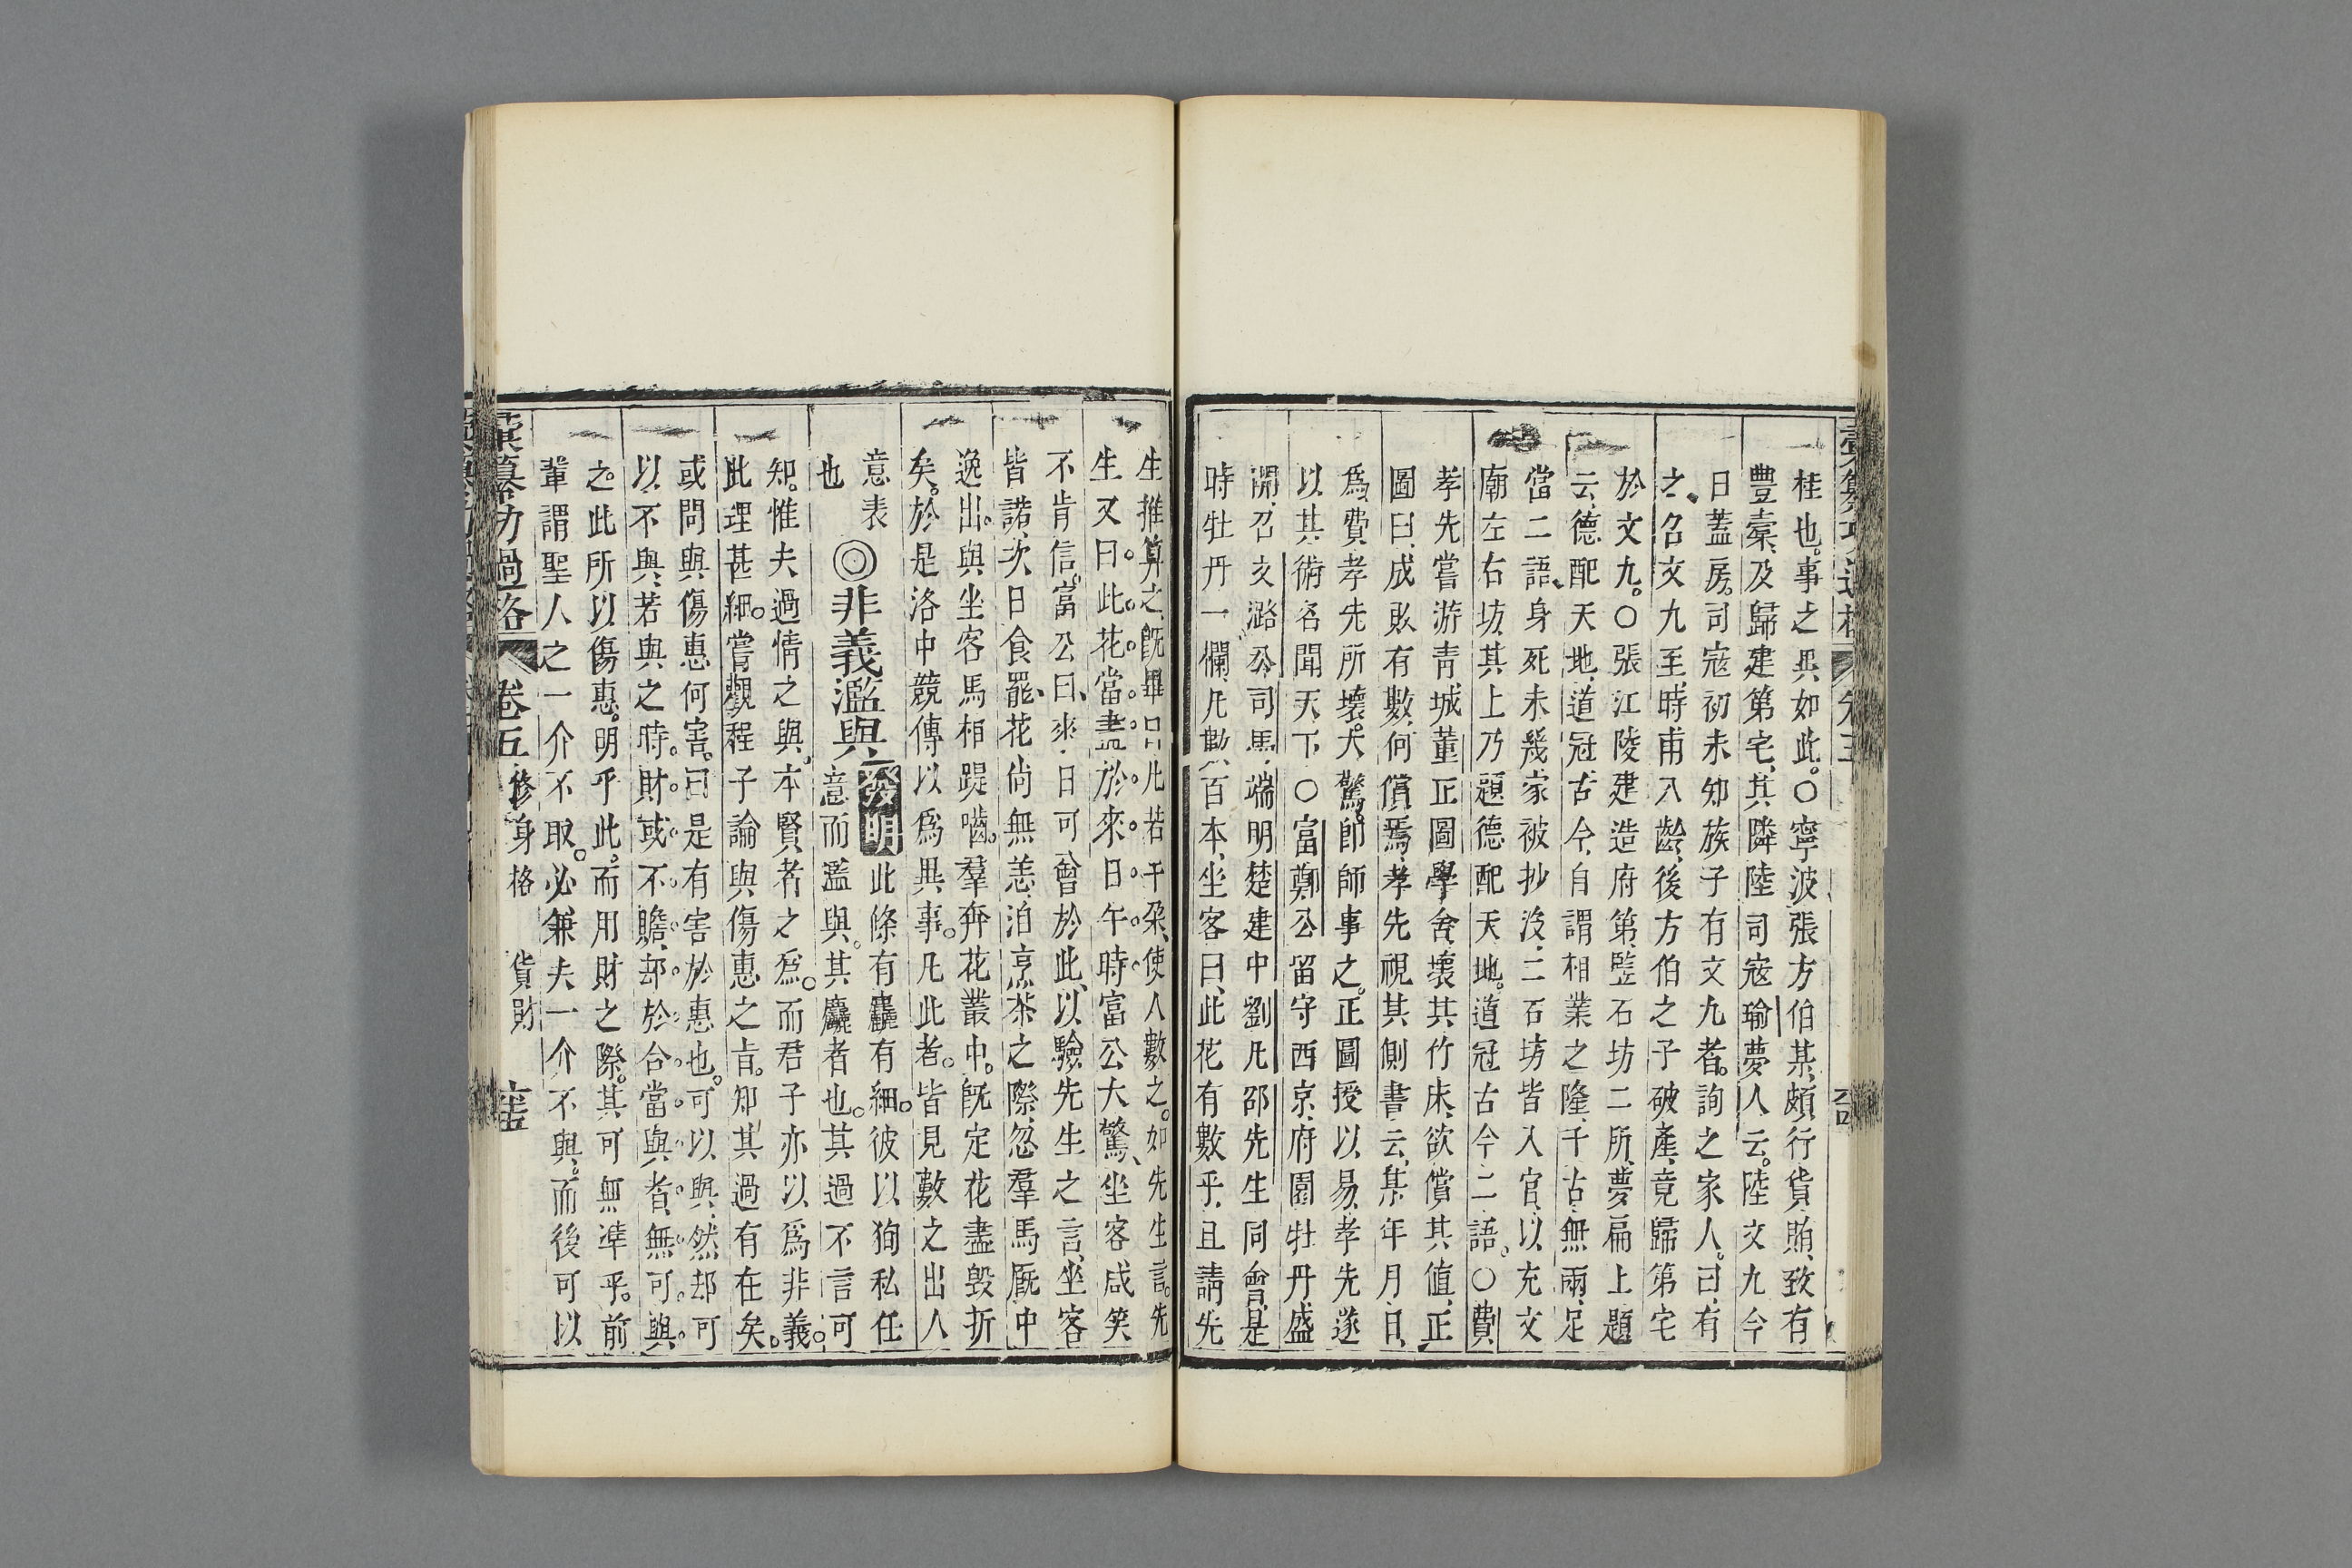 桂也。事之異如此。○寧波張方伯某、頗行貨賄、致有
豐槖、及歸建第宅、其隣陸司寇瑜夢人云。陸文九今
日蓋房。司寇初未知族子有文九者。詢之家人。曰、有
之、召文九至、時甫八齡、後方伯之子破產、竟歸第宅
於文九。○張江陵建造府第、竪石坊二所、夢扁上題
云、德配天地、道冠古今、自謂相業之隆、千古無兩、足
當二語、身死未幾、家被抄沒、二石坊皆入官、以充文
廟左右坊、其上乃題德配天地。道冠古今二語。○費
孝先嘗游青城董正圖學舍、壞其竹床、欲償其值、正
圖曰、成敗有數、何償焉、孝先視其側書云、某年月日、
爲費孝先所壞。大驚。卽師事之。正圖授以易、孝先遂
以其術名聞天下○富鄭公留守西京、府園牡丹盛
開、召文潞公司馬端明楚建中劉凡邵先生同會、是
時牡丹一欄、凡數百本、坐客曰、此花有數乎、且請先
生推算之、旣畢曰、凡若干朶、使人數之。如先生言。先
生又曰。此花當盡於來日午時、富公大驚、坐客咸笑
不肯信。富公曰、來日可會於此、以驗先生之言、坐客
皆諾、次日食罷、花尚無恙、泊烹茶之際、忽羣馬厩中
逸出。與坐客馬相踶嚙。羣奔花叢中。旣定花盡毀折
矣。於是洛中競傳以爲異事。凡此者。皆見數之出人
意表
也
◎非義濫與、
發明此條有麤有細。彼以狥私任
意而濫與。其麤者也。其過不言可
知。惟夫過情之與、本賢者之爲。而君子亦以爲非義。
此理甚細。嘗觀程子論與傷惠之旨。知其過有在矣。
或問與傷惠何害。曰是有害於惠也。可以與、然却可
以不與、若與之時。財或不贍、却於合當與者、無可與
之。此所以傷惠。明乎此。而用財之際。其可無準乎。前
輩謂聖人之一介不取。必兼夫一介不與。而後可以
彙纂功過格 卷五 修身格 貨財